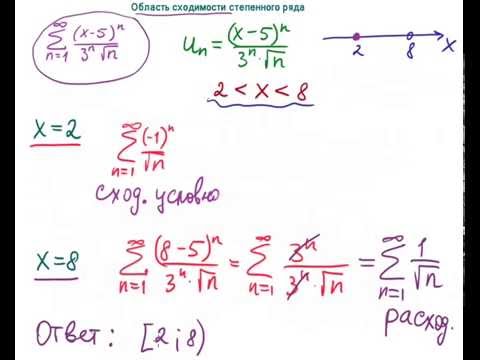 Область сходимости степенного ряда
∑_{n=1}^{∞} (x-5)^n / (3^n √n)
U_n = (x-5)^n / (3^n · √n)
2 8 X
2 < x < 8
x=2 ∑_{n=1}^{∞} (-1)^n / √n
сход. условно
x=8 ∑_{n=1}^{∞} (8-5)^n / (3^n · √n) = ∑_{n=1}^{∞} 3^n / (3^n · √n) = ∑_{n=1}^{∞} 1 / √n
расход.
Ответ: [2; 8)